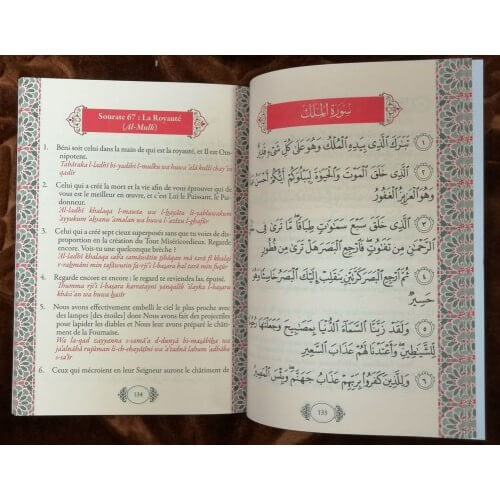 Sourate 67 : La Royauté
(Al-Mulk)
1. Béni soit celui dans la main de qui est la royauté, et Il est Om-
nipotent.
Tabâraka l-ladhî bi-yadihi l-mulku wa huwa 'alâ kulli chay'in
qadîr
2. Celui qui a créé la mort et la vie afin de vous éprouver qui de
vous est le meilleur en œuvre, et c'est Lui le Puissant, le Par-
donneur.
Al-ladhî khalaqa l-mawta wa l-hayâta li-yabluwakum
ayyukum ahsanu 'amalan wa huwa l-'azîzu l-ghafûr
3. Celui qui a créé sept cieux superposés sans que tu voies de dis-
proportion en la création du Tout Miséricordieux. Regarde
encore. Vois-tu une quelconque brèche ?
Al-ladhî khalaqa sab'a samâwâtin tibâqan mâ tarâ fî khalqi
r-rahmâni min tafâwutin fa-rji'i l-basara hal tarâ min futûr
4. Regarde encore et encore : le regard te reviendra
Thumma rji'i l-basara karratayni yanqalib 'ilayka l-basaru
khâsi'an wa huwa hasîr
5. Nous avons effectivement embelli le ciel le plus proche avec
des lampes [des étoiles] dont Nous avons fait des projectiles
pour lapider les diables et Nous leur avons préparé le châti-
ment de la Fournaise.
Wa la-qad zayyanna s-samâ'a d-dunyâ bi-masâbîha wa
ja'alnâhâ rujûman li-ch-chayâtîni wa 'a'tadnâ lahum 'adhâba
s-sa'îr
6. Ceux qui mécroient en leur Seigneur auront le châtiment de
134
سُورَةُ المُلْكِ
١ تَبَٰرَكَ الَّذِي بِيَدِهِ الْمُلْكُ وَهُوَ عَلَىٰ كُلِّ شَيْءٍ قَدِيرٌ
٢ الَّذِي خَلَقَ الْمَوْتَ وَالْحَيَوٰةَ لِيَبْلُوَكُمْ أَيُّكُمْ أَحْسَنُ
وَهُوَ الْعَزِيزُ الْغَفُورُ
٣ الَّذِي خَلَقَ سَبْعَ سَمَٰوَٰتٍ طِبَاقًا ۖ مَّا تَرَىٰ فِي
الرَّحْمَٰنِ مِن تَفَٰوُتٍ ۖ فَارْجِعِ الْبَصَرَ هَلْ تَرَىٰ مِن فُطُورٍ
٤ ثُمَّ ارْجِعِ الْبَصَرَ كَرَّتَيْنِ يَنقَلِبْ إِلَيْكَ الْبَصَرُ خَاسِئًا وَهُوَ
حَسِيرٌ
٥ وَلَقَدْ زَيَّنَّا السَّمَاءَ الدُّنْيَا بِمَصَٰبِيحَ وَجَعَلْنَٰهَا
لِّلشَّيَٰطِينِ ۖ وَأَعْتَدْنَا لَهُمْ عَذَابَ السَّعِيرِ
٦ وَلِلَّذِينَ كَفَرُوا بِرَبِّهِمْ عَذَابُ جَهَنَّمَ ۖ وَبِئْسَ الْمَصِيرُ
135